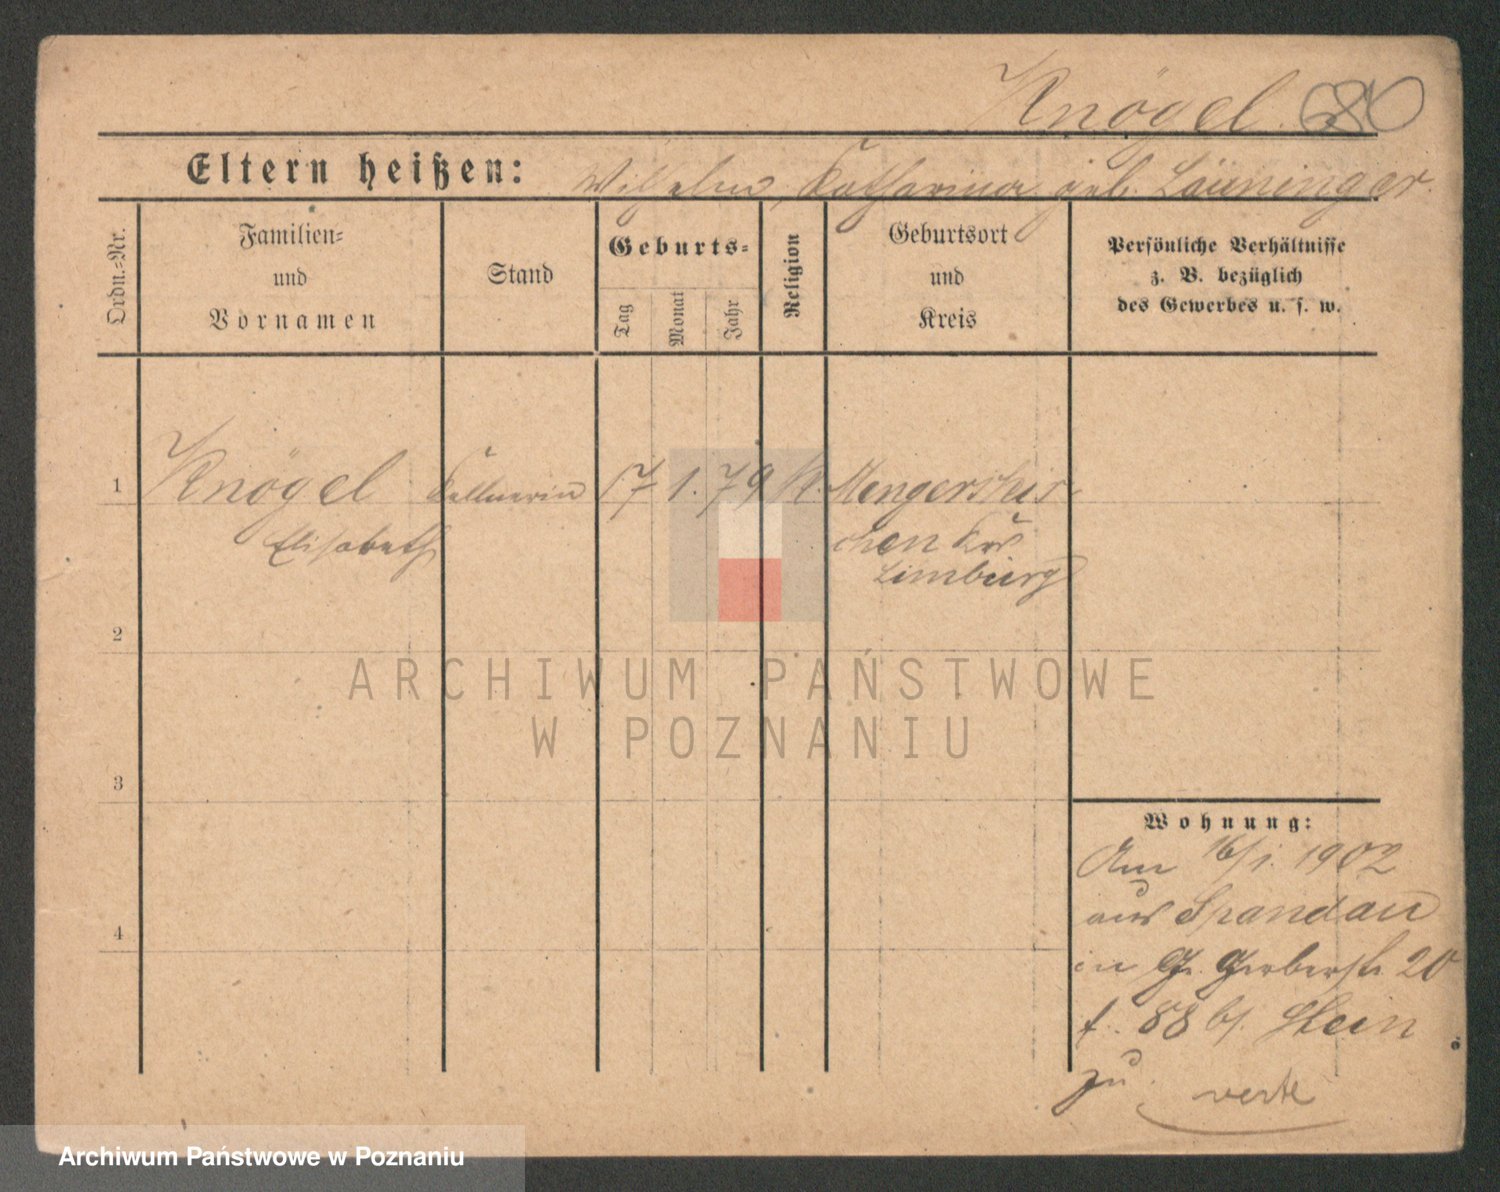 Knögel 680
Eltern heißen: Wilhelm, Katharina geb. Läuninger.
Ordn.-Nr.
Familien- und Vornamen
Stand
Geburts-
Tag
Monat
Jahr
Religion
Geburtsort und Kreis
Persönliche Verhältnisse
z. B. bezüglich
des Gewerbes u. s. w.
1 Knögel Kellnerin 17 1. 79 K. Mengerskir
Elisabeth chen Krs
Limburg
2
3
4
Wohnung:
Am 16/1. 1902
aus Spandau
in Gr. Gerberstr. 20
f. 88 b/. Stein
zu
verte
ARCHIWUM PAŃSTWOWE
W POZNANIU
Archiwum Państwowe w Poznaniu